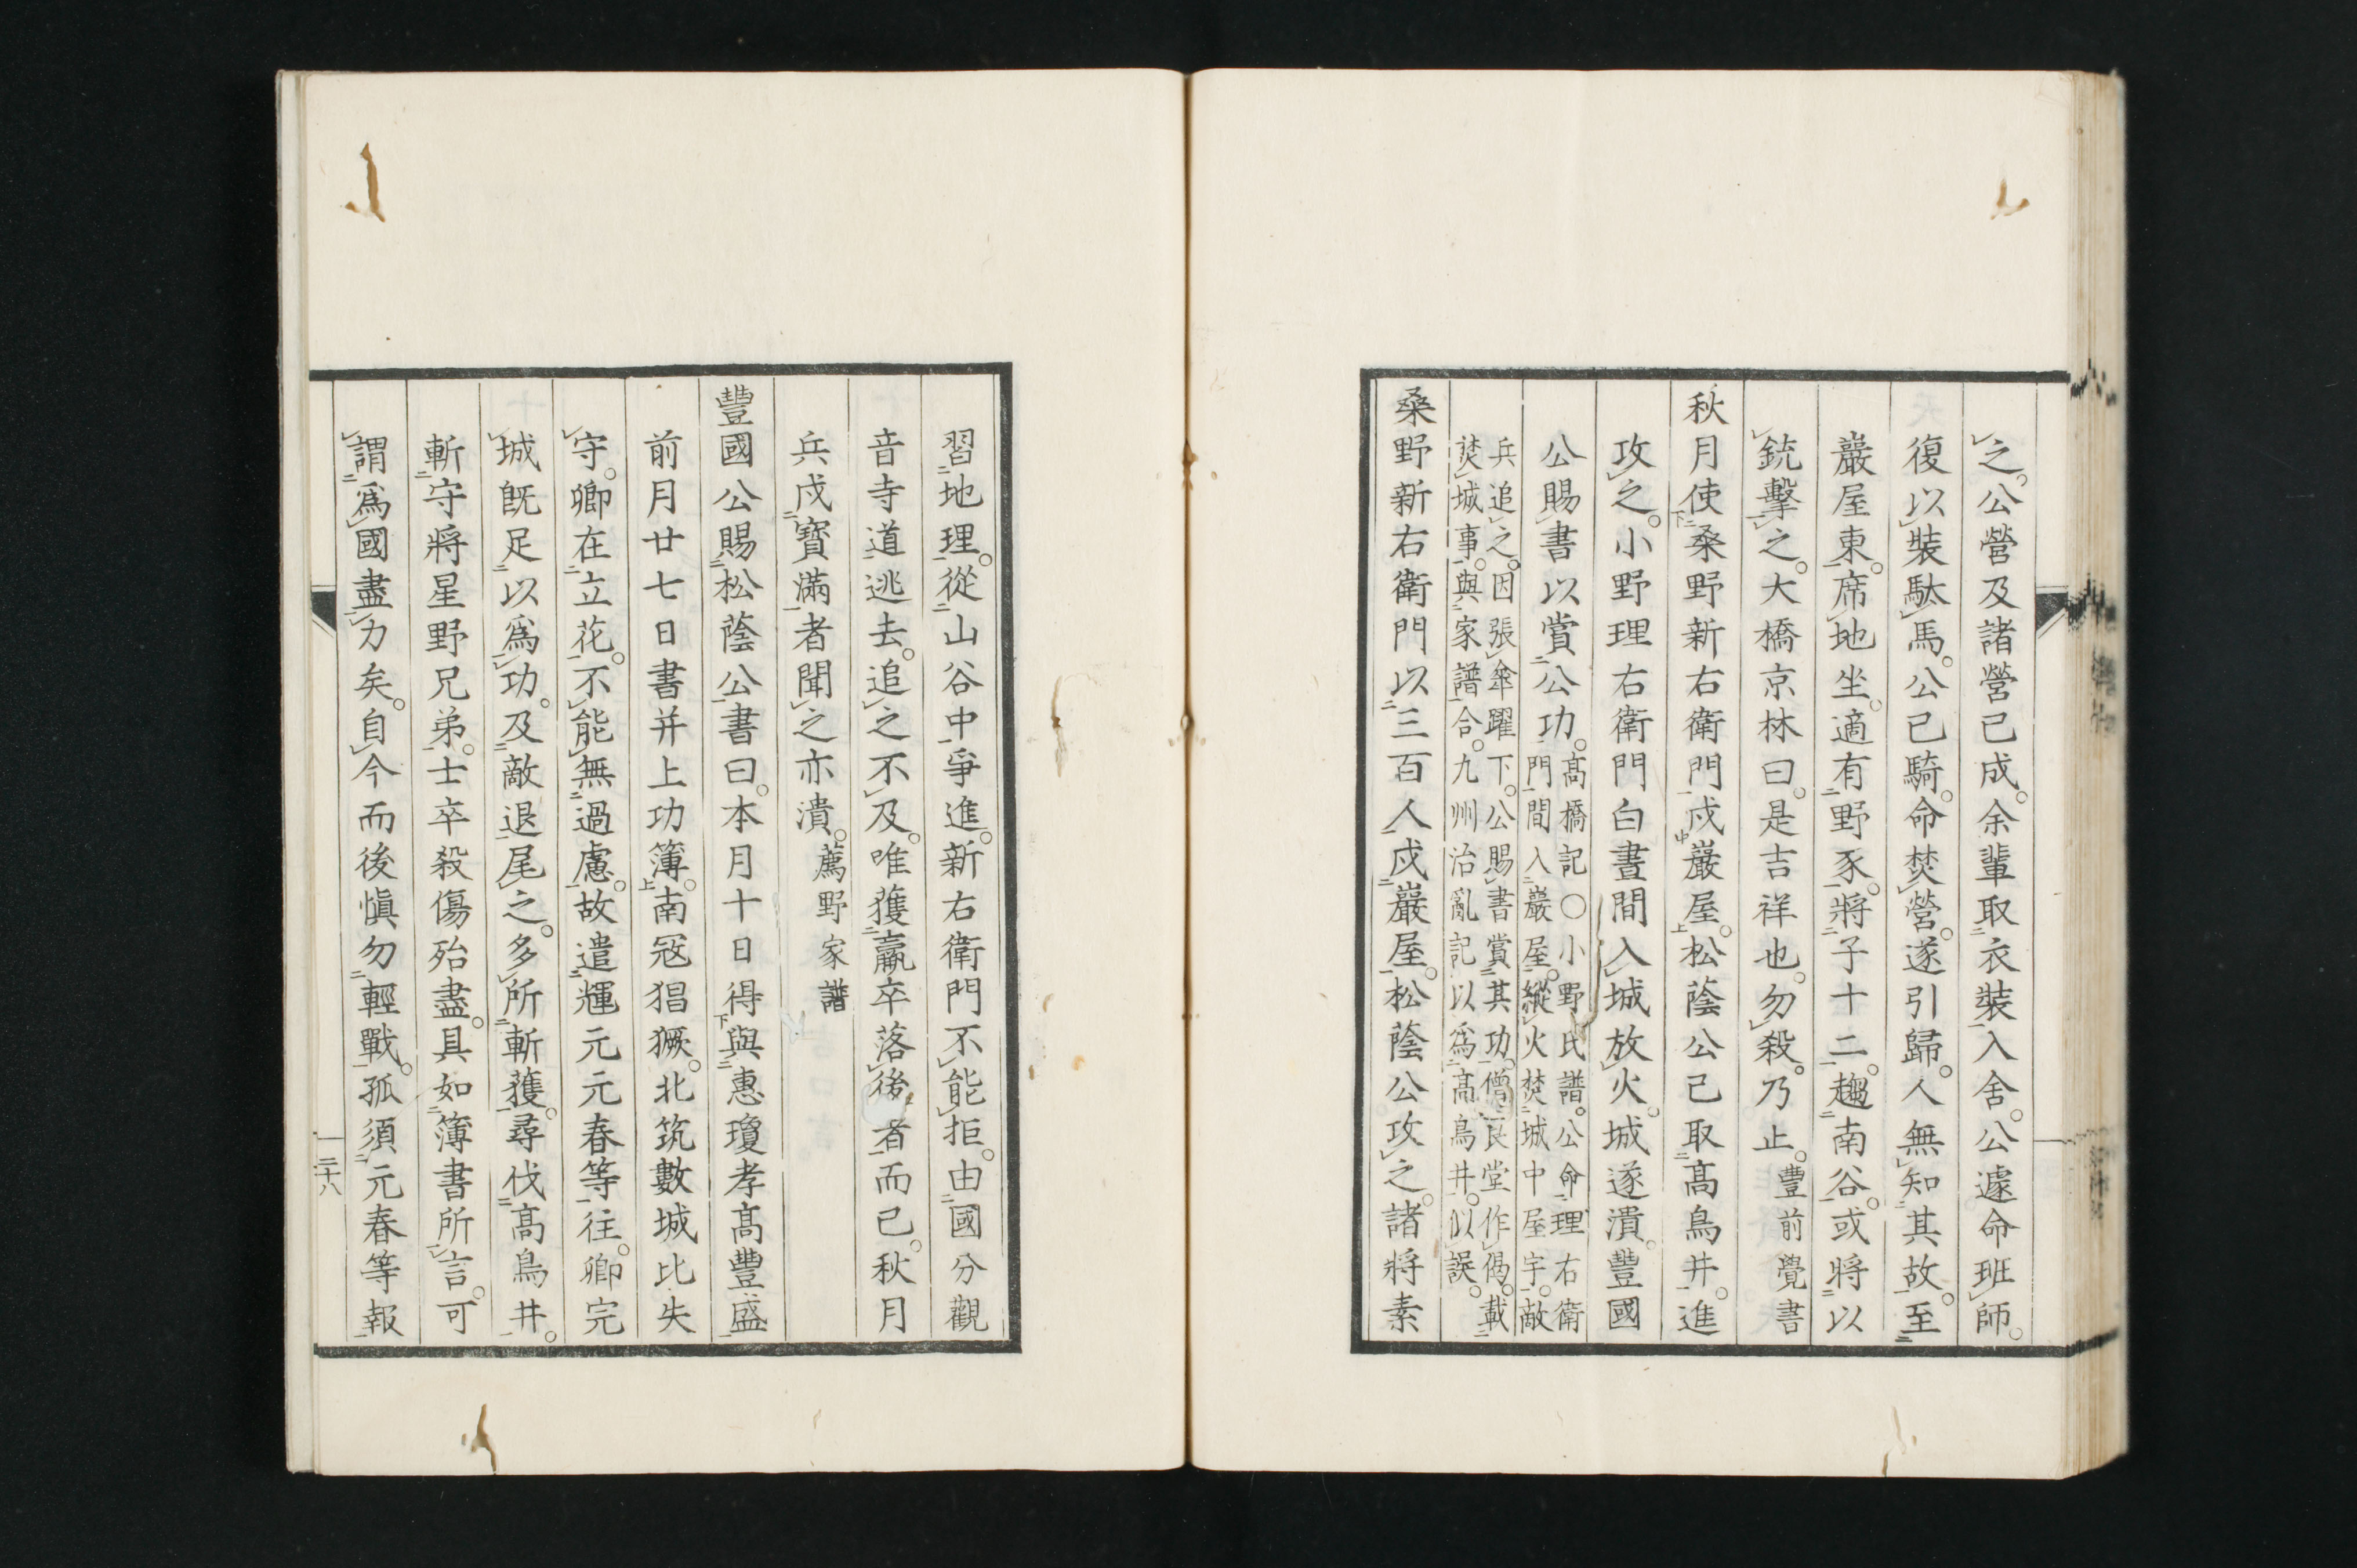 之。公營及諸營已成。余輩取衣裝入舍。公遽命班師。
復以裝馱馬。公已騎。命焚營。遂引歸。人無知其故。至
巖屋東。席地坐。適有野豕。將子十二。趨南谷。或將以
銃擊之。大橋京林曰。是吉祥也。勿殺。乃止。豐前覺書
秋月使桑野新右衛門戍巖屋。松蔭公已取高鳥井。進
攻之。小野理右衛門白晝間入城放火。城遂潰。豐國
公賜書以賞公功。高橋記〇小野氏譜。公命理右衛
門間入巖屋。縱火焚城中屋宇。敵
兵追之。因張傘躍下。公賜書賞其功。僧良堂作偈。載
焚城事。與家譜合。九州治亂記以爲高鳥井。似誤。
桑野新右衛門以三百人戍巖屋。松蔭公攻之。諸將素
習地理。從山谷中爭進。新右衛門不能拒。由國分觀
音寺道逃去。追之不及。唯獲羸卒落後者而已。秋月
兵戍寶滿者聞之亦潰。薦野家譜
豐國公賜松蔭公書曰。本月十日得與惠瓊孝高豐盛
前月廿七日書并上功簿。南冦猖獗。北筑數城比失
守。卿在立花。不能無過慮。故遣輝元元春等往。卿完
城既足以爲功。及敵退尾之。多所斬獲。尋伐高鳥井。
斬守將星野兄弟。士卒殺傷殆盡。具如簿書所言。可
謂爲國盡力矣。自今而後愼勿輕戰。孤須元春等報
二十八